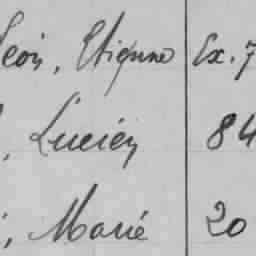 Léon, Etienne Ex. 7
, Lucien 84
, Marié 20